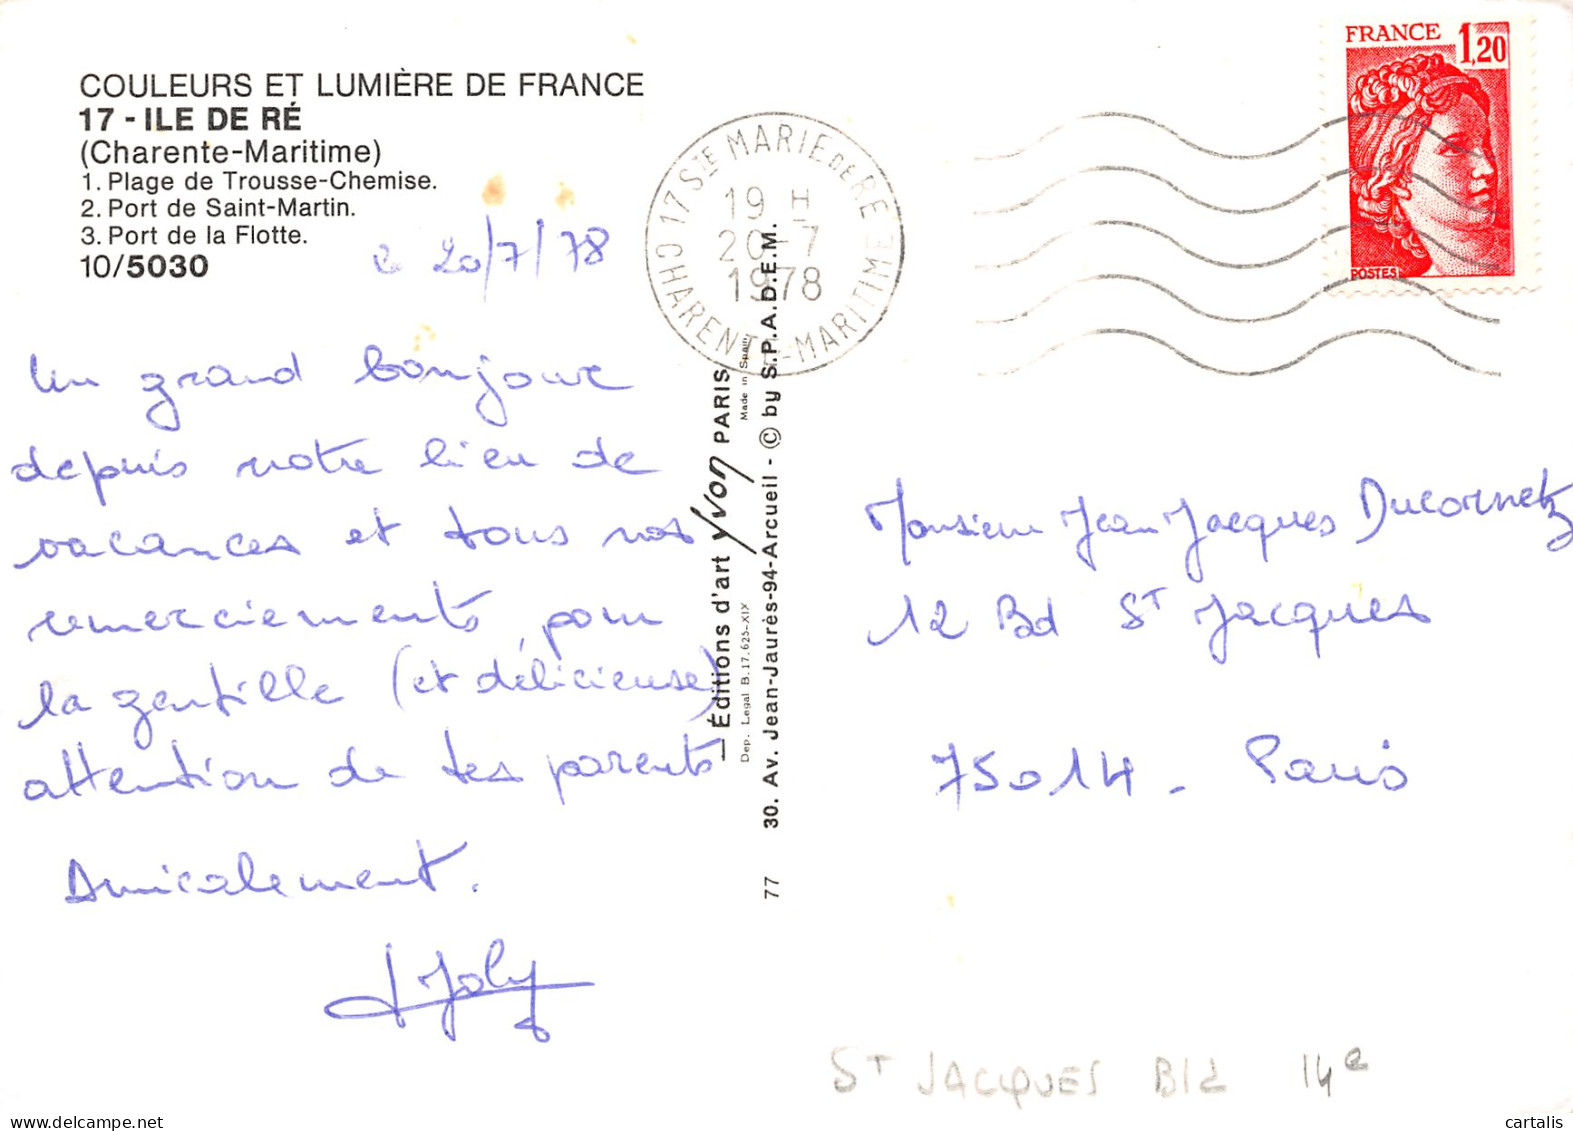 COULEURS ET LUMIÈRE DE FRANCE
17 - ILE DE RÉ
(Charente-Maritime)
1. Plage de Trousse-Chemise.
2. Port de Saint-Martin.
3. Port de la Flotte.
10/5030
le 20/7/78
Un grand bonjour
depuis notre lieu de
vacances et tous nos
remerciements pour
la gentille (et délicieuse)
attention de tes parents
Amicalement.
Joly
17 STE MARIE DE RE
19 H
20-7
1978
CHARENTE-MARITIME
— Éditions d'art Yvon PARIS
Dep. Legal B. 17.625-XIX
Made in Spain
30. Av. Jean-Jaurès-94-Arcueil - © by S.P.A.D.E.M.
77
FRANCE 1,20
POSTES
Monsieur Jean Jacques Ducornetz
12 Bd St Jacques
75014 - Paris
ST JACQUES Bld 14e
cartalis
delcampe.net